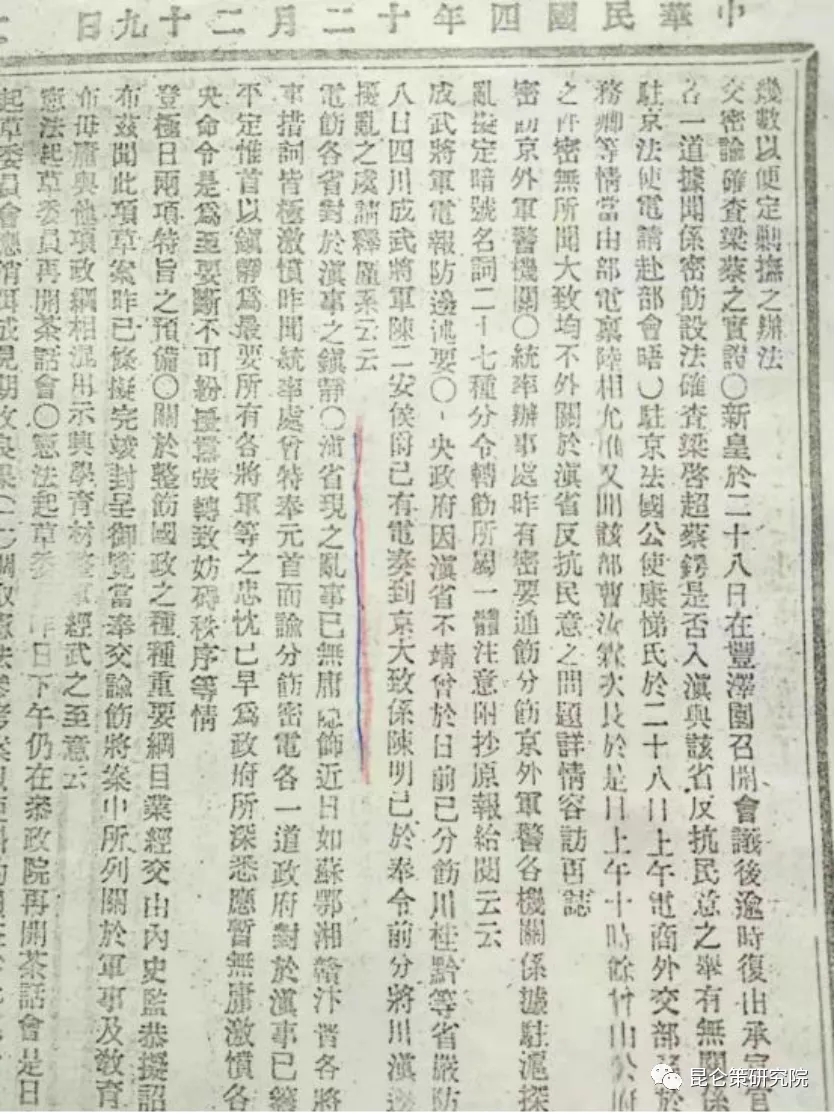 中華民國四年十二月二十九日
幾數以便定剿撫之辦法
交密諭確查梁蔡之實證〇新皇於二十八日在豐澤園召開會議後逾時復由承宣官
各一道據聞係密飭設法確查梁啓超蔡鍔是否入滇與該省反抗民意之舉有無關係
駐京法使電請赴部會晤〇駐京法國公使康悌氏於二十八日上午電商外交部
務卿等情當由部電稟陸相允准又聞該部曹汝霖次長於是日上午十時餘
之件密無所聞大致均不外關於滇省反抗民意之問題詳情容訪再誌
密飭京外軍警機關〇統率辦事處昨有密要通飭分飭京外軍警各機關係據駐滬探
亂擬定暗號名詞二十七種分令轉飭所屬一體注意附抄原報給閱云云
成武將軍電報防邊述要〇央政府因滇省不靖曾於日前已分飭川桂黔等省嚴防
八日四川成武將軍陳二安侯閣已有電奏到京大致係陳明已於奉令前分將川滇邊
擾亂之處請釋廑系云云
電飭各省對於滇事之鎮靜〇滇省現之亂事已無庸隱飾近日如蘇鄂湘贛汴晋各將
事措詞皆極激憤昨聞統率處曾特奉元首面諭分飭密電各一道政府對於滇事已籌
平定惟首以鎮靜為最要所有各將軍等之忠忱已早為政府所深悉應暫無庸激憤各
央命令是為至要斷不可紛擾囂張轉致妨碍秩序等情
登極日兩項特旨之預備〇關於整飭國政之種種重要綱目業經交由內史監恭擬詔
布茲聞此項草案昨已條擬完竣封呈御覽當奉交諭飭將案中所列關於軍事及敎育
布毋庸與他項政綱相混用示興學育材 經武之至意云
憲法起草委員再開茶話會〇憲法起草委 昨日下午仍在參政院再開茶話會是日
起草委員會應